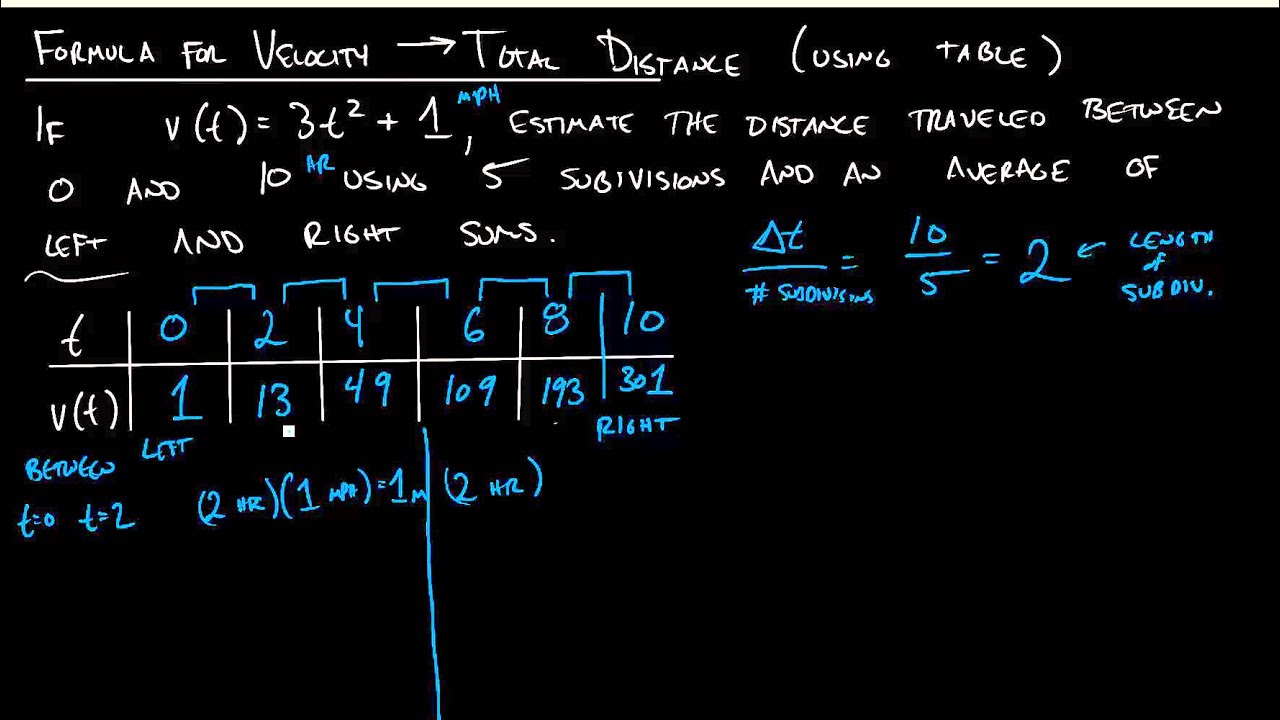 FORMULA FOR VELOCITY → TOTAL DISTANCE (USING TABLE)
IF v(t) = 3t² + 1 MPH, ESTIMATE THE DISTANCE TRAVELED BETWEEN
0 AND 10 HR USING 5 SUBIVISIONS AND AN AVERAGE OF
LEFT AND RIGHT SUMS.
Δt / # SUBDIVISIONS = 10 / 5 = 2 ← LENGTH of SUBDIV.
t 0 2 4 6 8 10
v(t) 1 13 49 109 193 301
LEFT RIGHT
BETWEEN
t=0 t=2 (2 HR)(1 MPH) = 1 M (2 HR)